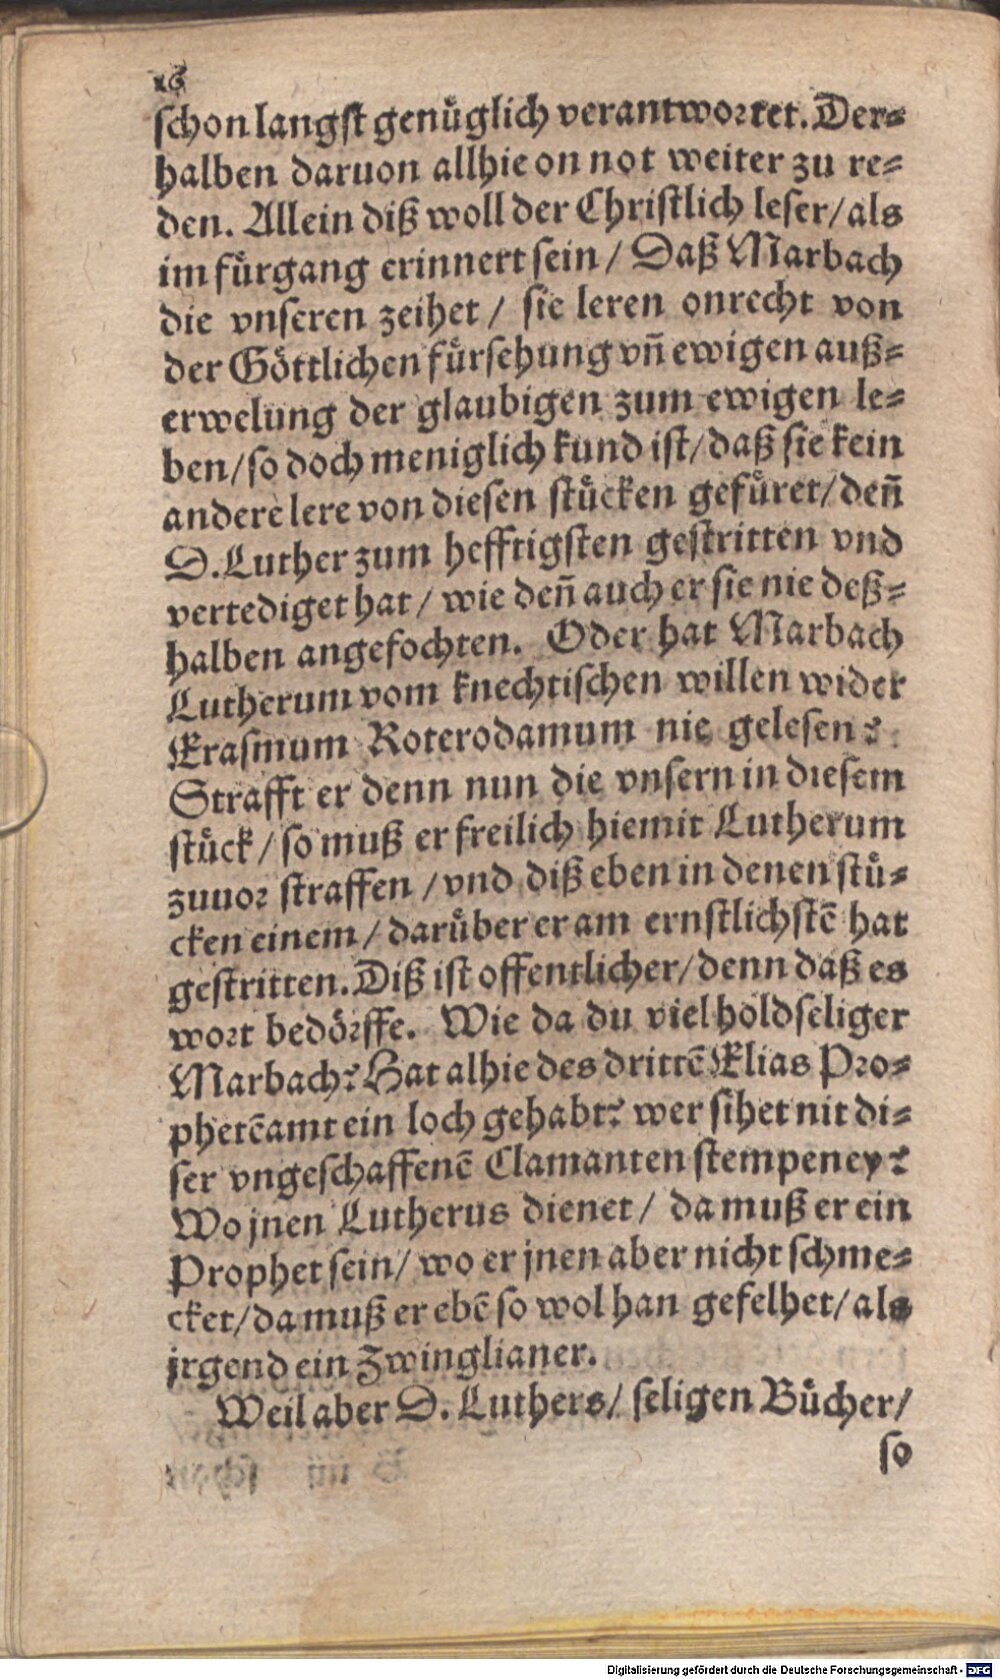 16
schon langst genuͤglich verantwortet. Der⸗
halben daruon allhie on not weiter zu re⸗
den. Allein diß woll der Christlich leser/ als
im fuͤrgang erinnert sein/ Daß Marbach
die vnseren zeihet/ sie leren onrecht von
der Goͤttlichen fuͤrsehung vñ ewigen auß⸗
erwelung der glaubigen zum ewigen le⸗
ben/ so doch meniglich kund ist/ daß sie kein
andere lere von diesen stuͤcken gefuͤret/ deñ
D. Luther zum hefftigsten gestritten vnd
vertediget hat/ wie deñ auch er sie nie deß⸗
halben angefochten. Oder hat Marbach
Lutherum vom knechtischen willen wider
Erasmum Roterodamum nie gelesen?
Strafft er denn nun die vnsern in diesem
stuͤck/ so muß er freilich hiemit Lutherum
zuuor straffen/ vnd diß eben in denen stuͤ⸗
cken einem/ daruͤber er am ernstlichstē hat
gestritten. Diß ist offentlicher/ denn daß es
wort bedoͤrffe. Wie da du viel holdseliger
Marbach? Hat alhie des drittē Elias Pro⸗
phetēamt ein loch gehabt? wer sihet nit di⸗
ser vngeschaffenē Clamanten stempeney?
Wo jnen Lutherus dienet/ da muß er ein
Prophet sein/ wo er jnen aber nicht schme⸗
cket/ da muß er ebē so wol han gefelhet/ als
jrgend ein Zwinglianer.
Weil aber D. Luthers/ seligen Buͤcher/
so
Digitalisierung gefördert durch die Deutsche Forschungsgemeinschaft - DFG